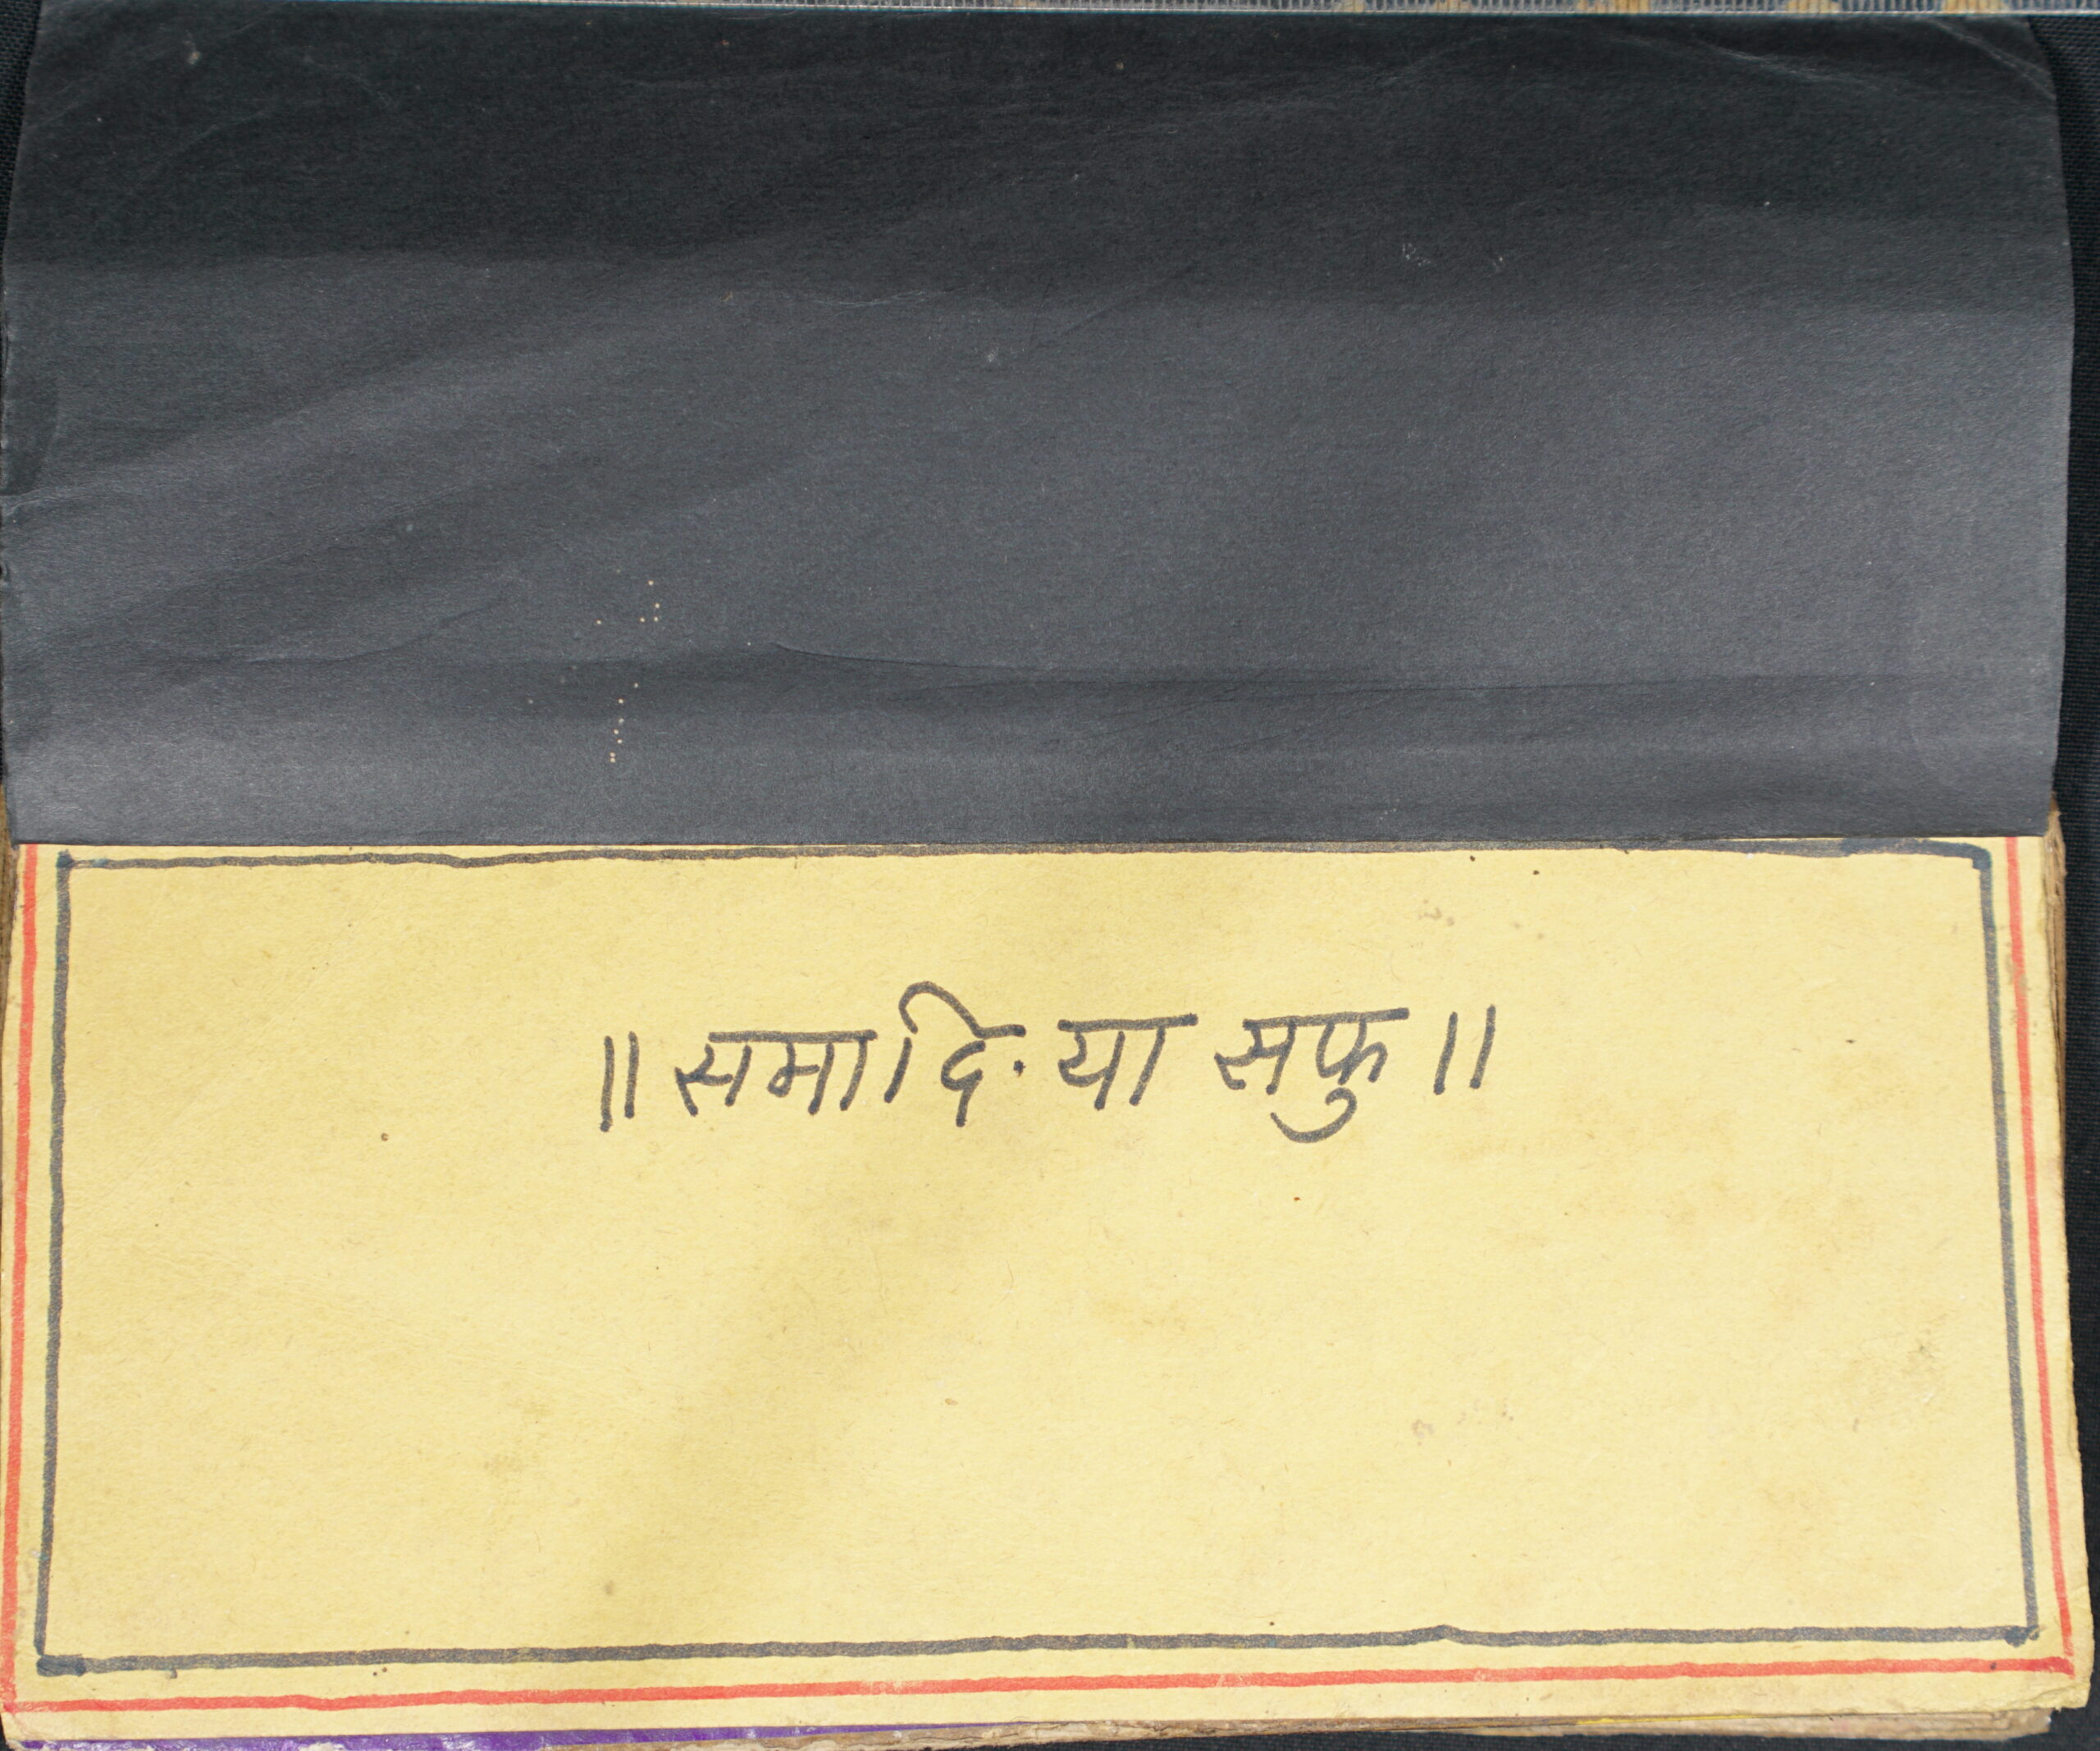 ॥ समादि. या सफु ॥